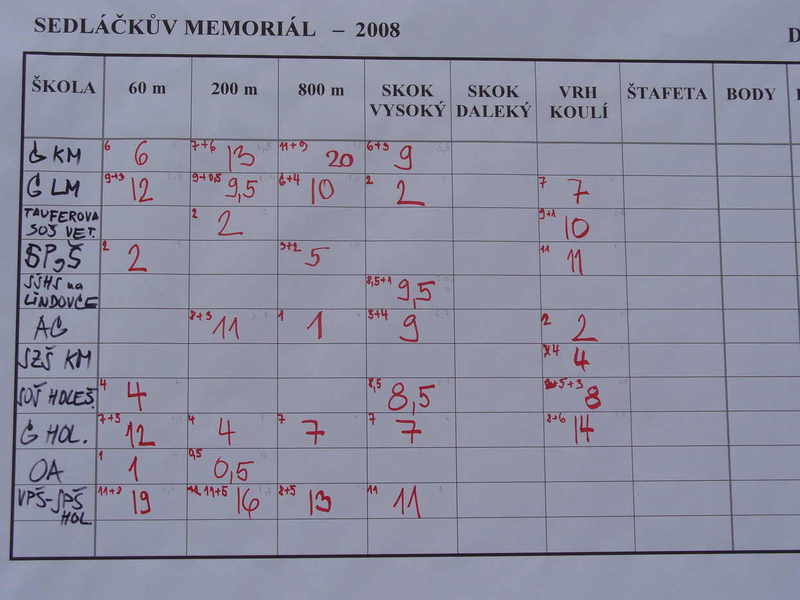 SEDLÁČKŮV MEMORIÁL – 2008
D
ŠKOLA 60 m 200 m 800 m SKOK VYSOKÝ SKOK DALEKÝ VRH KOULÍ ŠTAFETA BODY
G KM 6 6 7+6 13 11+9 20 6+3 9
G LM 9+3 12 9+0,5 9,5 6+4 10 2 2 7 7
TAUFEROVA SOŠ VET. 2 2 9+1 10
SPgŠ 2 2 3+2 5 11 11
SŠHS na LINDOVCE 8,5+1 9,5
AG 8+3 11 1 1 5+4 9 2 2
SZŠ KM 4 4
SOŠ HOLEŠ. 4 4 8,5 8,5 5+3 8
G HOL. 7+5 12 4 4 7 7 7 7 8+6 14
OA 1 1 0,5 0,5
VPŠ-SPŠ HOL 11+8 19 11+5 16 8+5 13 11 11